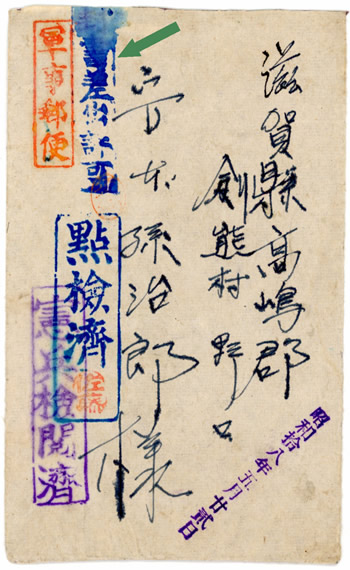 滋賀縣高嶋郡
剣熊村野口
昭和拾八年五月廿貳日
宮本孫治郎様
書差出許可
點檢濟
軍事郵便
憲兵檢閲濟